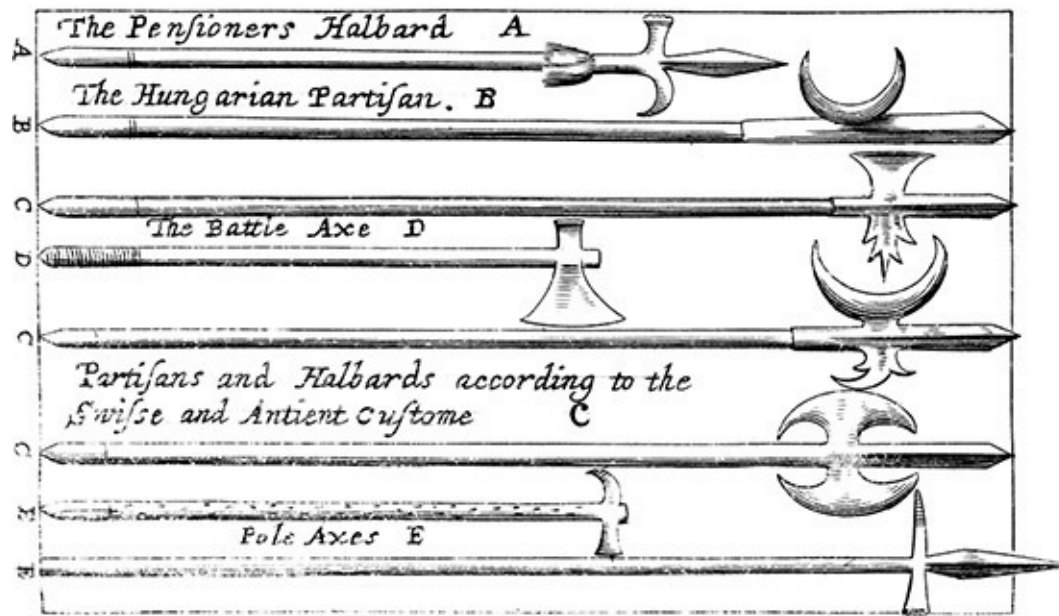 The Penſioners Halbard A
A
The Hungarian Partiſan. B
B
C
The Battle Axe D
D
C
Partiſans and Halbards according to the
Swiſſe and Antient Cuſtome C
C
E
Pole Axes E
E